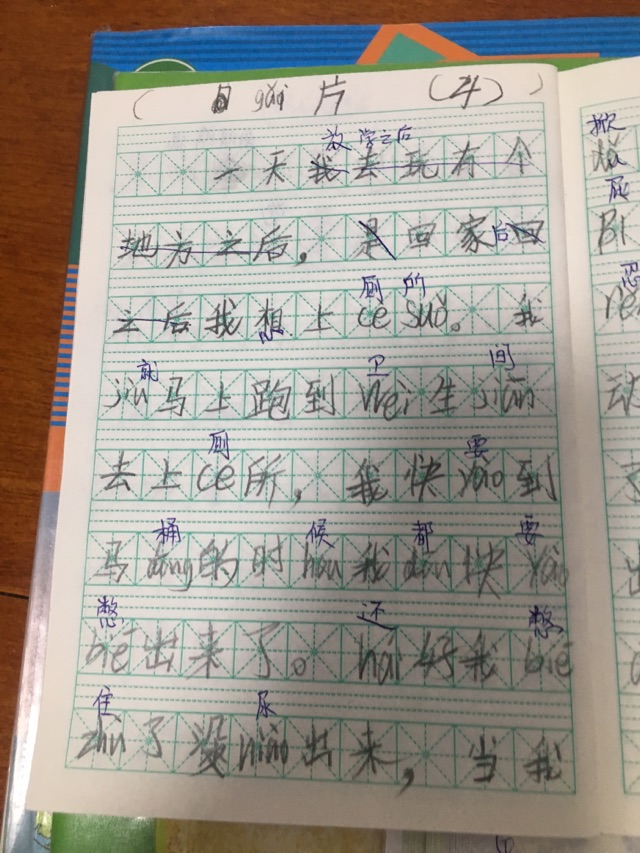 ( gǎi 片 (4) )
放学之后
一天我去玩有个
地方之后。是回家后回
厕 的
之后我想上cè suǒ。我
就 卫 间
jiù马上跑到wèi生jiān
厕 要
去上cè所，我快yào到
桶 候 都 要
马tǒng的时hou我dōu快yào
憋 还 憋
biē出来了。hái好我biē
住 尿
zhù了没niào出来，当我
掀
屁
忍
动